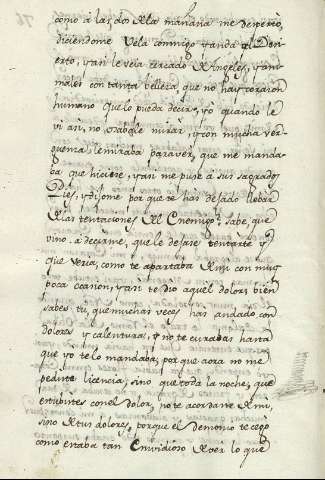 como a las dos de la mañana me desperto,
diciendome Vela conmigo, y anda al Desi
erto, y ari le vela cercado de Angeles, y ani
males con tanta velleza, que no hay coraçon
humano que lo pueda decir, yo quando le
vi asi, no osabale mirar, y con mucha ver
guenza le mirava para ver, que me manda
ba que hiciese, y asi me puse a sus sagrados
Pies, y dijome por que te has dejado llebar
de las tentaciones del Enemigo? sabe, que
vino a decirme, que le dejase tentarte y
que veria, como te apartaba de mi con muy
poca ocasion, y asi te dio aquel dolor, bien
sabes tu, que muchas veces has andado con
dolores y calentura, y no te curabas hasta
que yo te lo mandaba; por que aora no me
pediste licencia, sino que toda la noche, que
estubistes con el dolor, no te acordaste de mi,
sino de tus dolores, porque el Demonio te cego
como estaba tan Embidioso de ver lo que